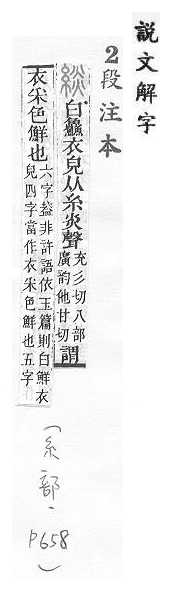 說文解字
2段注本
緂白鱻衣皃从糸炎聲充彡切八部廣韵他甘切謂
衣采色鮮也六字葢非許語依玉篇則白鮮衣皃四字當作衣采色鮮也五字
(糸部,P658)